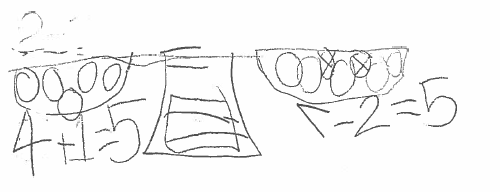 2
4+1=5
7-2=5